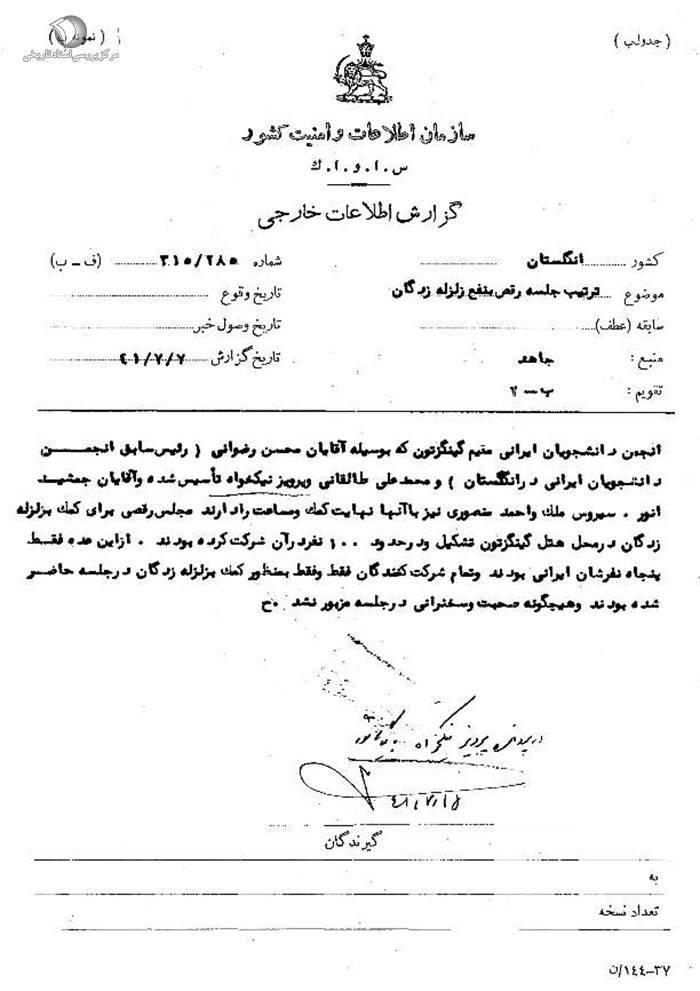 ( جدول ب )
( نمونه ب )
مرکز بررسی اسناد تاریخی
سازمان اطلاعات و امنیت کشور
س . ا . و . ا . ك
گزارش اطلاعات خارجی
کشور انگلستان شماره ۳۱۵/۲۸۵ (ف ـ ب)
موضوع ترتیب جلسه رقص بنفع زلزله زدگان تاریخ وقوع
سابقه (عطف): تاریخ وصول خبر
منبع : جاهد تاریخ گزارش ۴۱/۷/۷
تقویم : ب ـ ۲
انجمن دانشجویان ایرانی مقیم گینگزتون که بوسیله آقایان محسن رضوانی ( رئیس سابق انجمن
دانشجویان ایرانی در انگلستان ) و محمد علی طالقانی وپرویز نیکخواه تأسیس شده وآقایان جمشید
انور . سیروس ملك واحمد منصوری نیز باآنها نهایت کمك ومساعدت رادارند مجلس رقصی برای کمك بزلزله
زدگان درمحل هتل گینگزتون تشکیل ودرحدود ۱۰۰ نفردرآن شرکت کرده بودند . ازاین عده فقط
پنجاه نفرشان ایرانی بودند وتمام شرکت کنندگان فقط وفقط بمنظور کمك بزلزله زدگان درجلسه حاضر
شده بودند وهیچگونه صحبت وسخنرانی درجلسه مزبور نشد .ح
پرویز نیکخواه
۴۱/۷/۱۵
گیرندگان
به
تعداد نسخه
۳۷-۱۴۴/ن